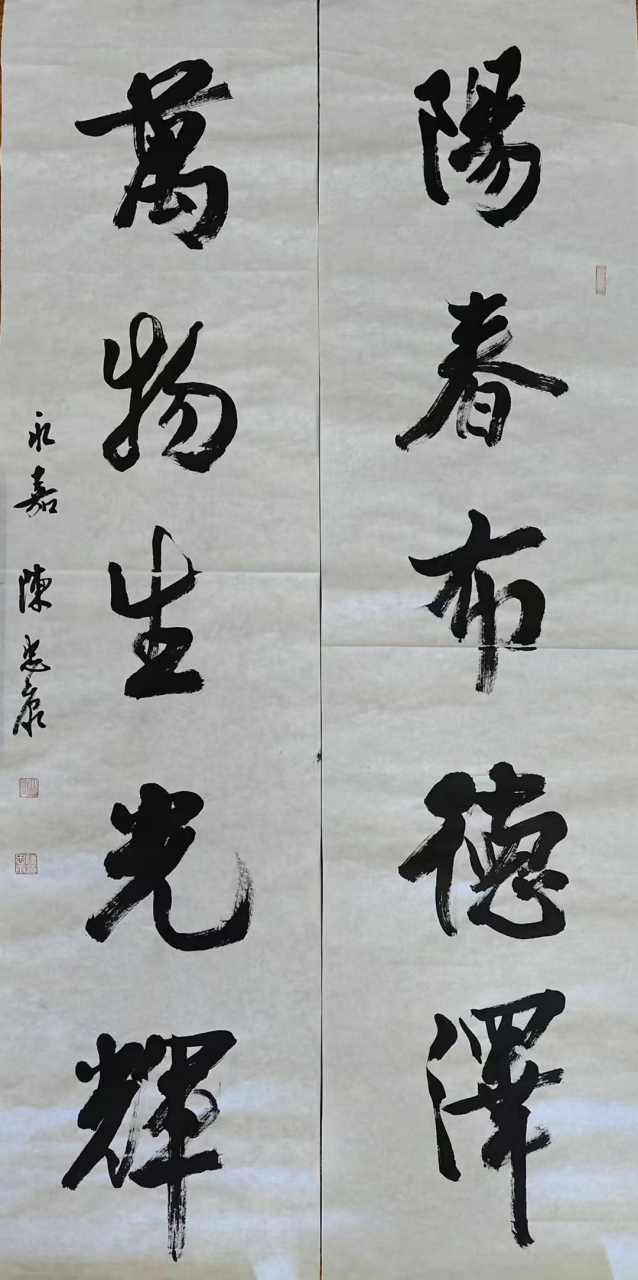 陽春布德澤
萬物生光輝
永嘉 陳忠康